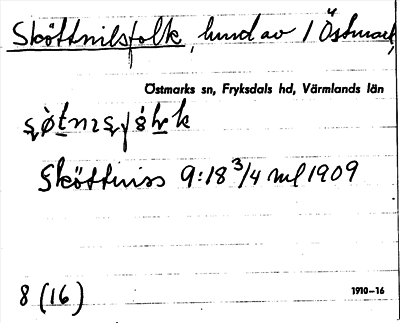 Sköttnilsfolk, hund av i Östmark,
Östmarks sn, Fryksdals hd, Värmlands län
Sköttniss 9:18 3/4 ml 1909
8 (16)
1910-16